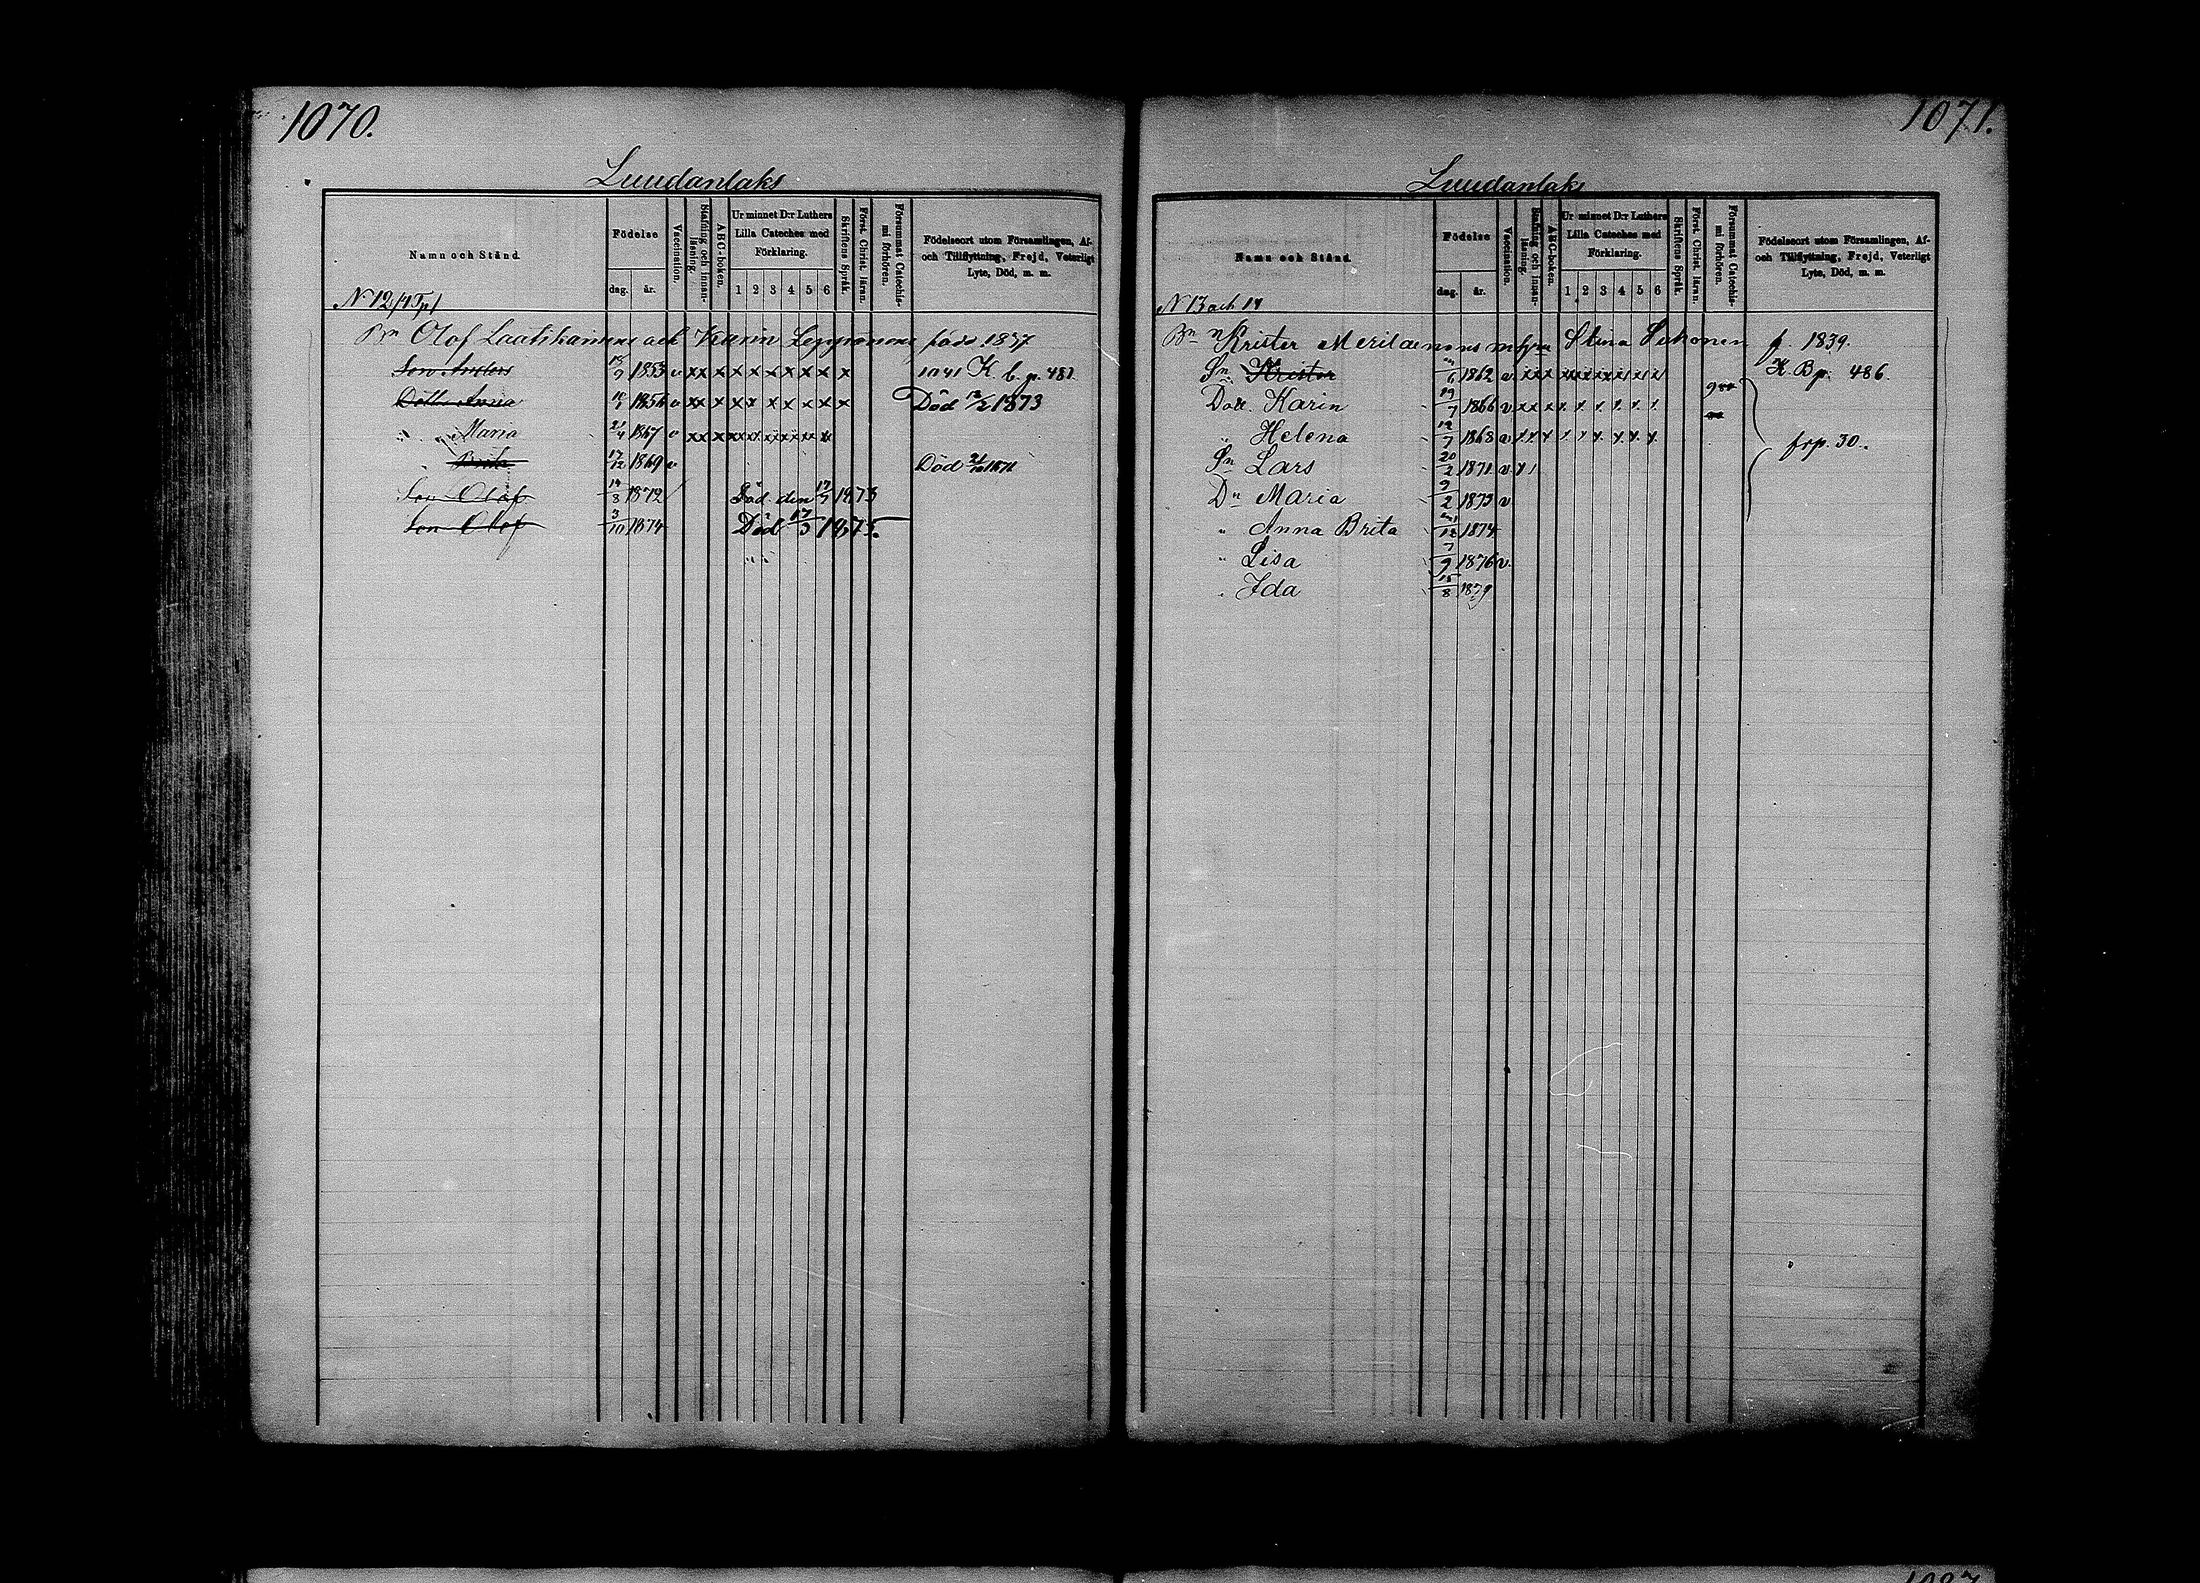 1070.
Luudanlaks
Namn och Stånd.
Födelse
dag. år.
Vaccination.
Stafning och innanläsning.
ABC-boken.
Ur minnet D:r Luthers Lilla Cateches med Förklaring.
1 2 3 4 5 6
Skriftens Språk.
Först. Christ. läran.
Försummat Catechismi förhören.
Födelseort utom Församlingen, Af- och Tillflyttning, Frejd, Veterligt Lyte, Död, m. m.
N 12
Bn Olof Laatikainens och Karin född 1837
Son Anders 1853 v x x x x x x x x x x 1041 K. b. p. 481
Dott. Anna 1856 v x x x x x x x x x x Död 1873
" " Maria 21/4 1867 v x x x x x x x x x
" Brita 17/12 1869 v Död
Son Olof 14/8 1872 Död den 1873
Son Olof 3/10 1874 Död 17/3 1875.
1071.
Luudanlaks
Namn och Stånd.
Födelse
dag. år.
Vaccination.
Stafning och innanläsning.
ABC-boken.
Ur minnet D:r Luthers Lilla Cateches med Förklaring.
1 2 3 4 5 6
Skriftens Språk.
Först. Christ. läran.
Försummat Catechismi förhören.
Födelseort utom Församlingen, Af- och Tillflyttning, Frejd, Veterligt Lyte, Död, m. m.
N 13 och 14
Bn Krister Meriläinens m hn Stina f. 1839.
Sn Krister 1862 v x x x x x x x x x K. B p. 486.
Dott. Karin 19/7 1866 v x x x x x x x x x
" Helena 12/7 1868 v x x x x x x x x x frp. 30.
Sn Lars 20/2 1871 v
Dn Maria 9/2 1873 v
" Anna Brita 1874
" Lisa 7/9 1876 v.
" Ida 15/8 1879